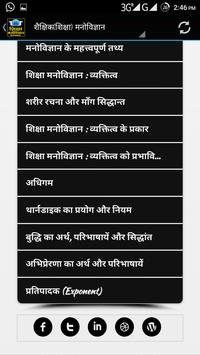 3G 2:46 PM
शैक्षिक(शिक्षा) मनोविज्ञान
मनोविज्ञान के महत्त्वपूर्ण तथ्य
शिक्षा मनोविज्ञान : व्यक्तित्व
शरीर रचना और माँग सिद्धान्त
शिक्षा मनोविज्ञान : व्यक्तित्व के प्रकार
शिक्षा मनोविज्ञान : व्यक्तित्व को प्रभावि...
अधिगम
थार्नडाइक का प्रयोग और नियम
बुद्धि का अर्थ, परिभाषायें और सिद्धांत
अभिप्रेरणा का अर्थ और परिभाषायें
प्रतिपादक (Exponent)